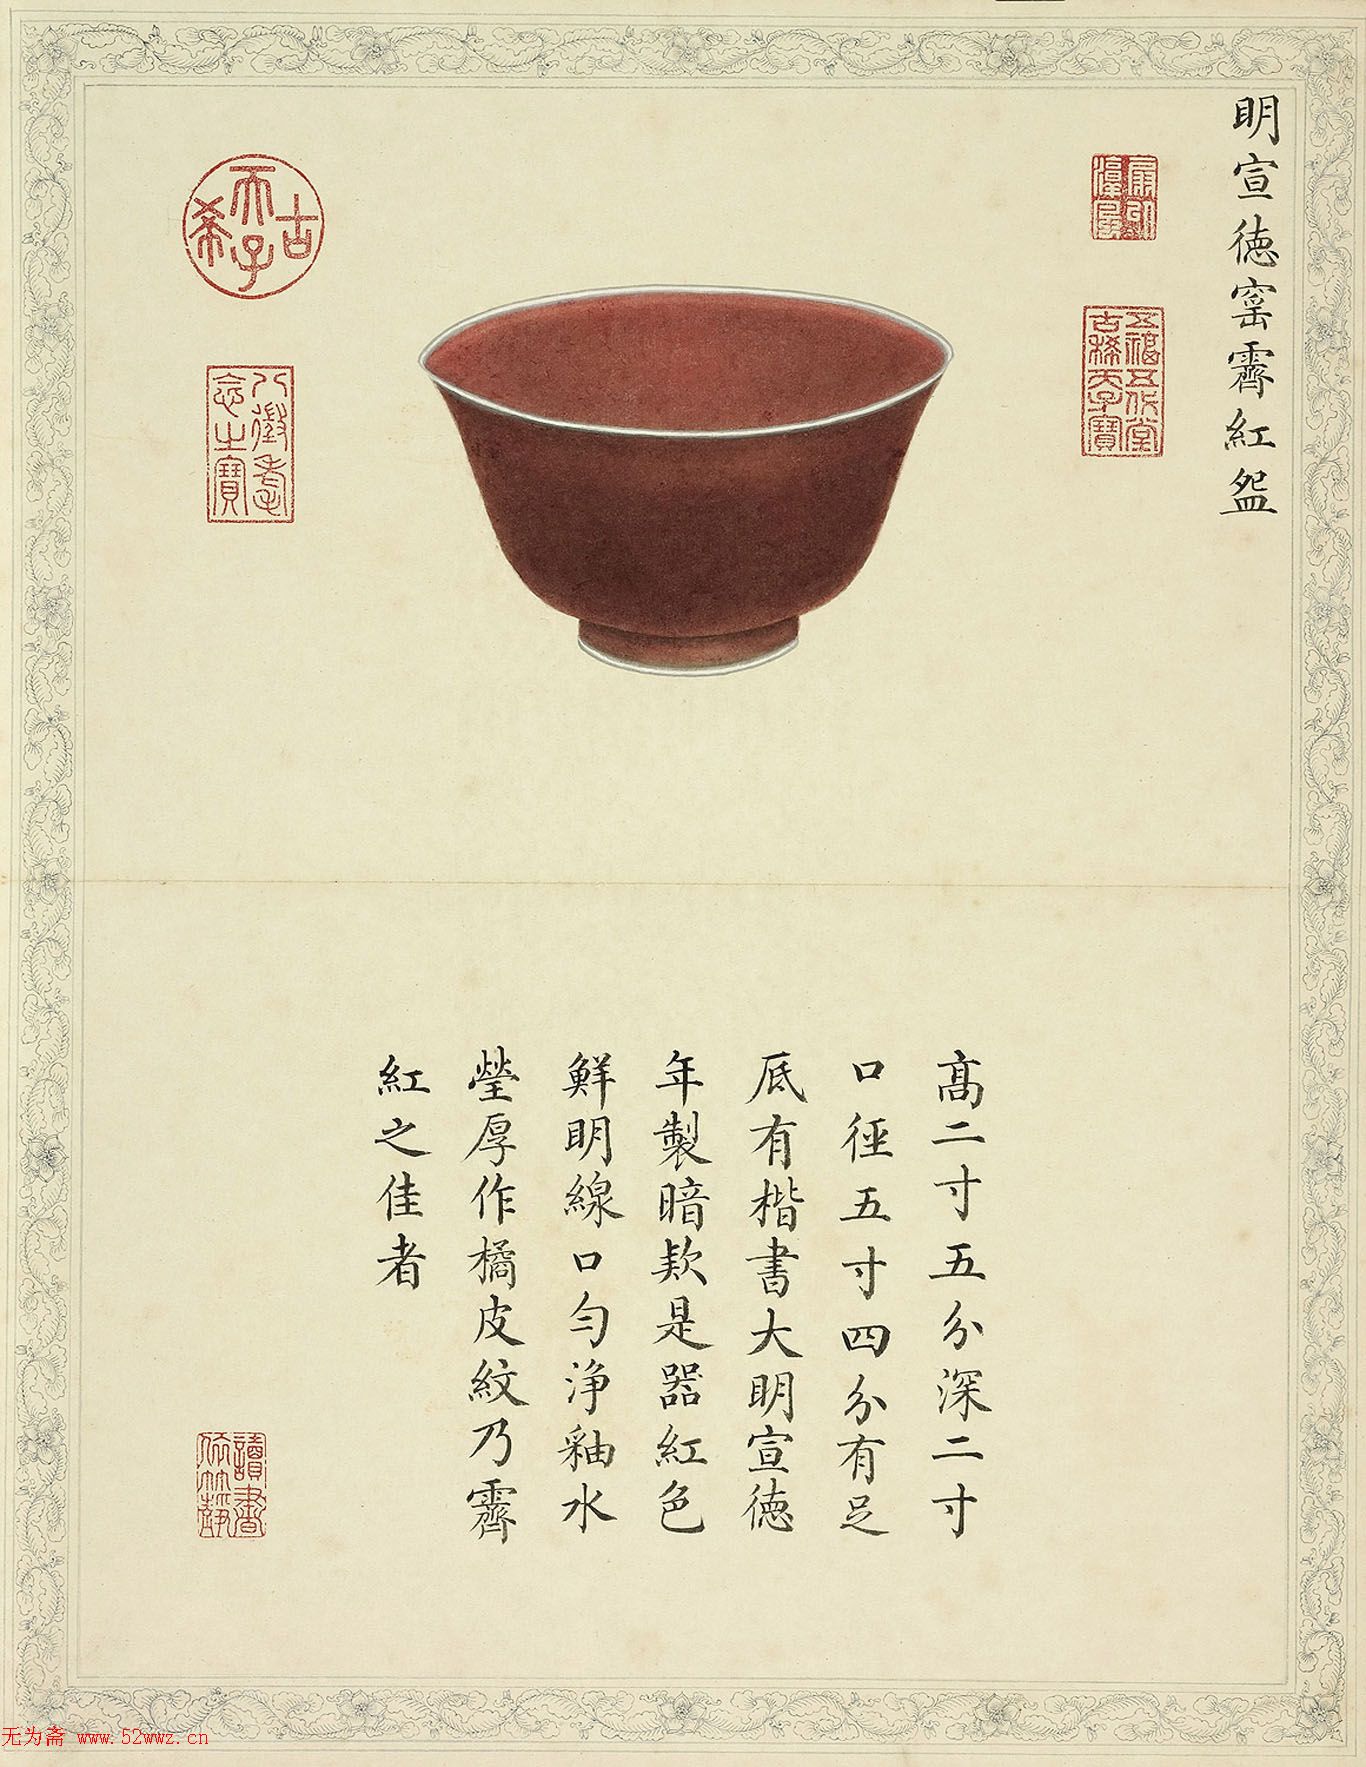 明宣徳窰霽紅盌
五福五代堂
古稀天子寶
古希天子
八徵耄
念之寶
高二寸五分深二寸
口徑五寸四分有足
底有楷書大明宣徳
年製暗欵是器紅色
鮮明線口勻浄釉水
瑩厚作橘皮紋乃霽
紅之佳者
讀書
依竹静
无为斋 www.52wwz.cn